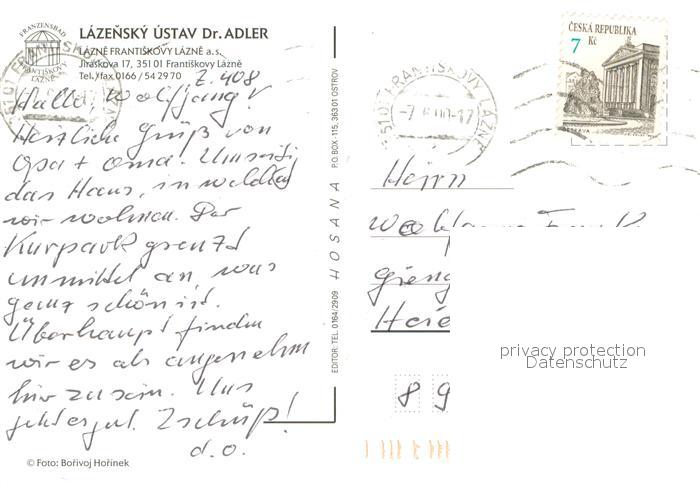 FRANZENSBAD
FRANTIŠKOVY
LÁZNĚ
LÁZEŇSKÝ ÚSTAV Dr. ADLER
LÁZNĚ FRANTIŠKOVY LÁZNĚ a.s.
Jiráskova 17, 351 01 Františkovy Lázně
Tel./fax 0166 / 54 29 70
Z. 408
Hallo, Wolfgang!
Herzliche Grüße von
Opa + Oma. Umseitig
das Haus, in welchem
wir wohnen. Der
Kurpark grenzt
unmittelbar an, was
ganz schön ist.
Überhaupt finden
wir es als angenehm
hier zu sein. Uns
geht es gut. Tschüß!
d. o.
© Foto: Bořivoj Hořínek
EDITOR: TEL. 0164/2909 HOSANA P.O. BOX-115, 363 01 OSTROV
351 01 FRANTIŠKOVY LÁZNĚ
-7.6.00-17
ČESKÁ REPUBLIKA
7 Kč
OPAVA
Herrn
Wolfgang
8 9
privacy protection
Datenschutz